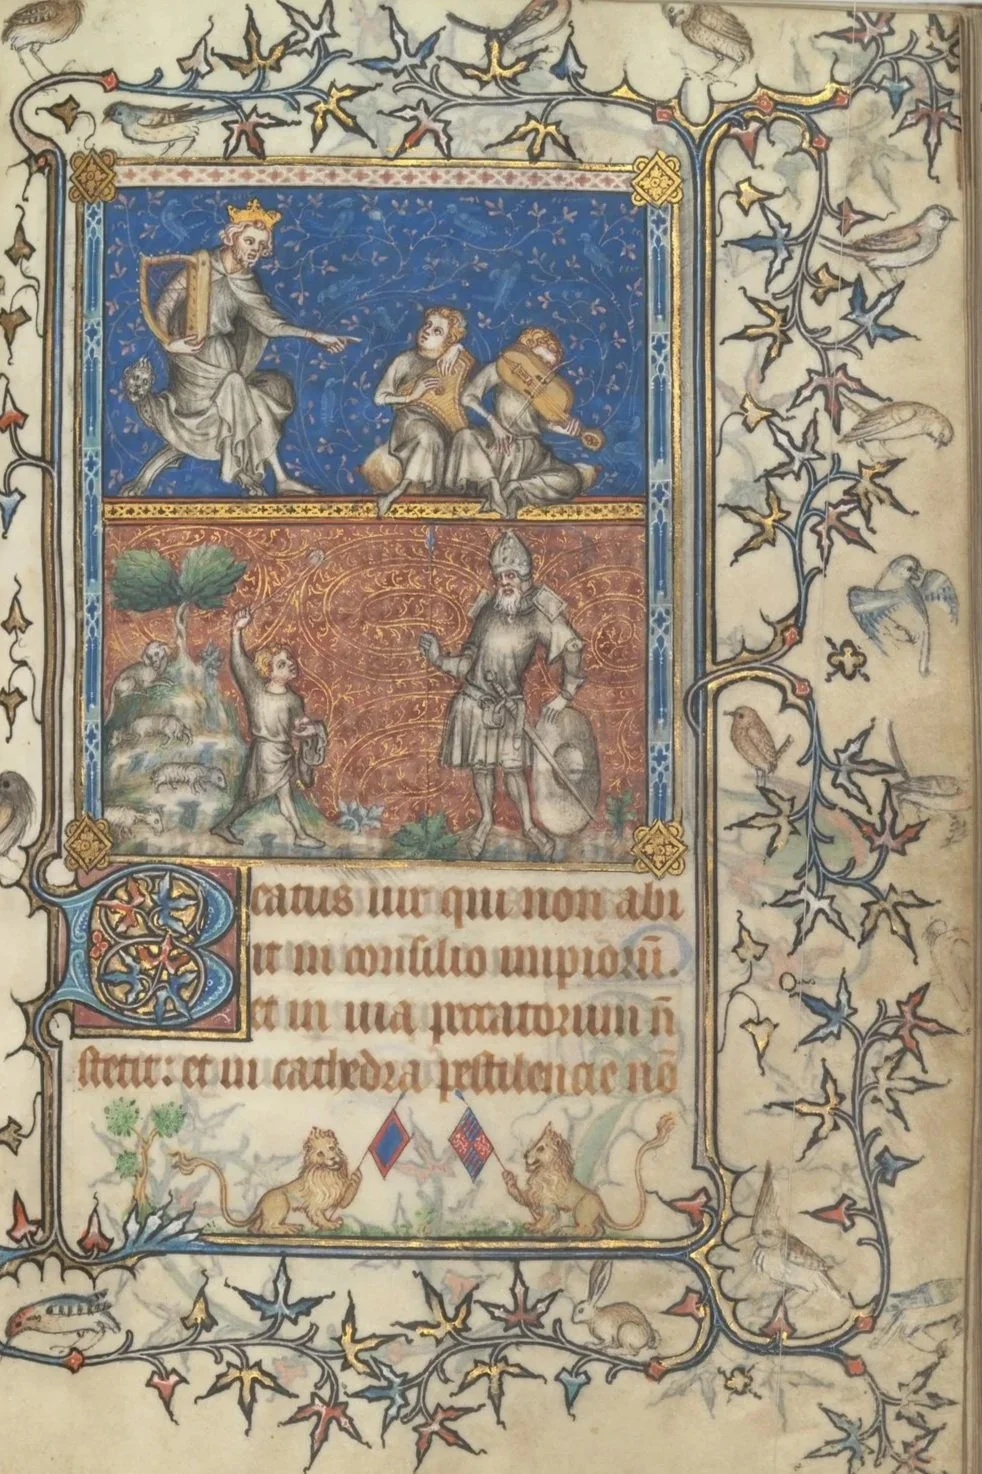 Beatus uir qui non abi
it in consilio impiorū.
et in uia peccatorium ñ
stetit: et in cathedra pestilencie nō